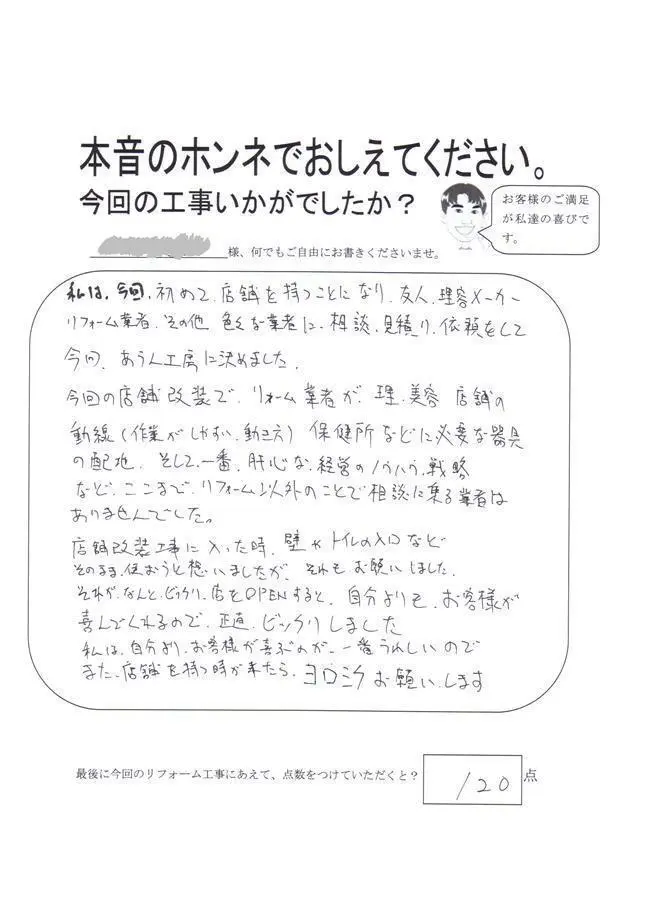 本音のホンネでおしえてください。
今回の工事いかがでしたか？
お客様のご満足
が私達の喜びで
す。
様、何でもご自由にお書きくださいませ。
私は、今回、初めて、店舗を持つことになり、友人、理容メーカー
リフォーム業者、その他 色々な業者に、相談、見積り、依頼をして
今回、あうん工房に決めました。
今回の店舗改装で、リフォーム業者が、理、美容 店舗の
動線(作業がしやすい、動き方) 保健所などに必要な器具
の配地、そして、一番、肝心な、経営のノウハウ、戦略
など、ここまで、リフォーム以外のことで相談に乗る業者は
ありませんでした。
店舗改装工事に入った時、壁や トイレの入口など
そのまま、使おうと想いましたが、それもお願いしました。
それが、なんと、ビックリ、店をOPENすると、自分よりも、お客様が
喜んでくれるので、正直、ビックリしました
私は、自分より、お客様が喜ぶのが、一番うれしいので
また、店舗を持つ時が来たら、ヨロシクお願いします
最後に今回のリフォーム工事にあえて、点数をつけていただくと？
120 点